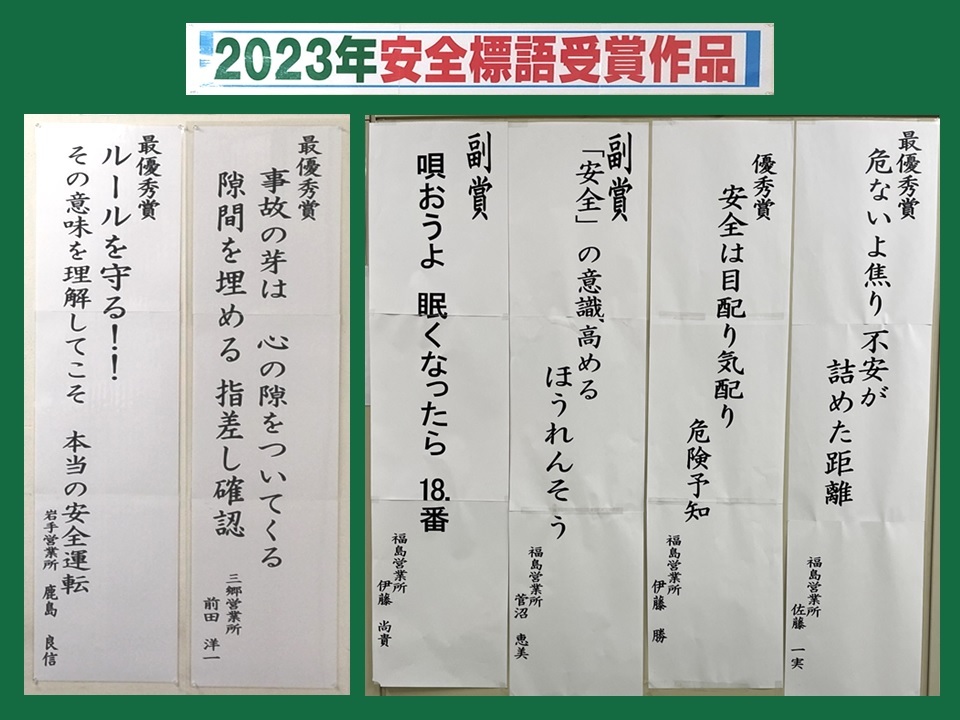 2023年安全標語受賞作品
最優秀賞
危ないよ焦り不安が
詰めた距離
福島営業所
佐藤 一実
優秀賞
安全は目配り気配り
危険予知
福島営業所
伊藤 勝
副賞
「安全」の意識高める
ほうれんそう
福島営業所
菅沼 恵美
副賞
唄おうよ 眠くなったら 18.番
福島営業所
伊藤 尚貴
最優秀賞
事故の芽は 心の隙をついてくる
隙間を埋める 指差し確認
三郷営業所
前田 洋一
最優秀賞
ルールを守る!!
その意味を理解してこそ 本当の安全運転
岩手営業所 鹿島 良信